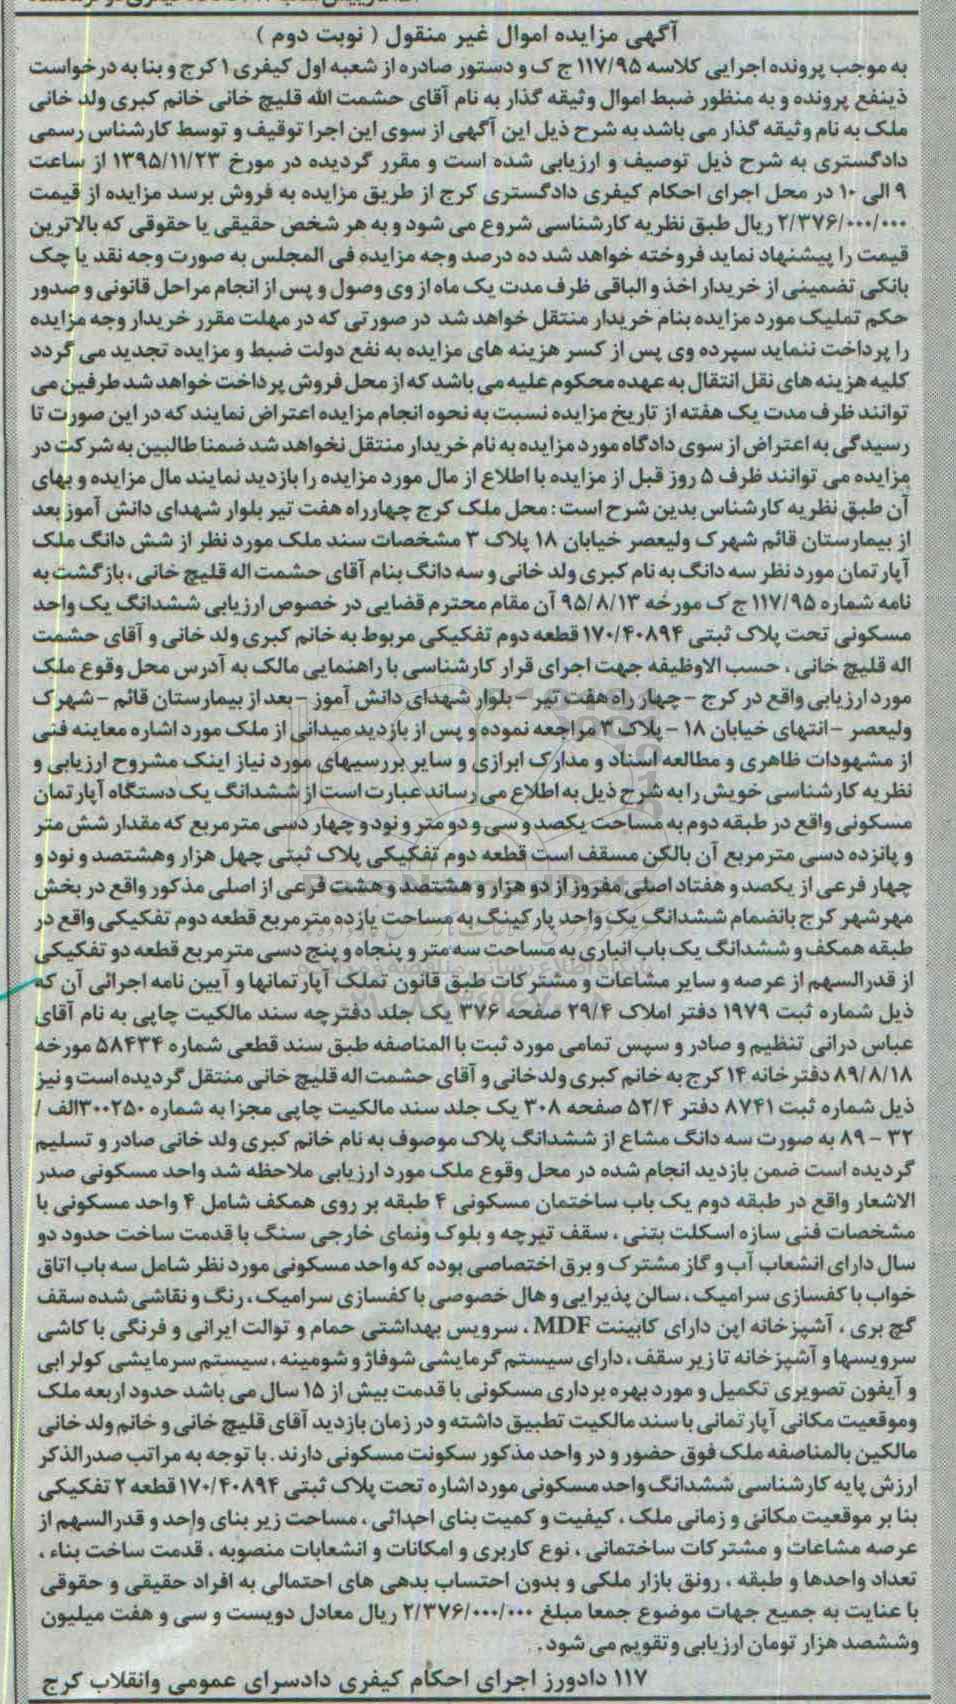 آگهی مزایده اموال غیر منقول ( نوبت دوم )
به موجب پرونده اجرایی کلاسه ۱۱۷/۹۵ ج ک و دستور صادره از شعبه اول کیفری ۱ کرج و بنا به درخواست
ذینفع پرونده و به منظور ضبط اموال وثیقه گذار به نام آقای حشمت الله قلیچ خانی خانم کبری ولد خانی
ملک به نام وثیقه گذار می باشد به شرح ذیل این آگهی از سوی این اجرا توقیف و توسط کارشناس رسمی
دادگستری به شرح ذیل توصیف و ارزیابی شده است و مقرر گردیده در مورخ ۱۳۹۵/۱۱/۲۳ از ساعت
۹ الی ۱۰ در محل اجرای احکام کیفری دادگستری کرج از طریق مزایده به فروش برسد مزایده از قیمت
۲/۳۷۶/۰۰۰/۰۰۰ ریال طبق نظریه کارشناسی شروع می شود و به هر شخص حقیقی یا حقوقی که بالاترین
قیمت را پیشنهاد نماید فروخته خواهد شد ده درصد وجه مزایده فی المجلس به صورت وجه نقد یا چک
بانکی تضمینی از خریدار اخذ و الباقی ظرف مدت یک ماه از وی وصول و پس از انجام مراحل قانونی و صدور
حکم تملیک مورد مزایده بنام خریدار منتقل خواهد شد در صورتی که در مهلت مقرر خریدار وجه مزایده
را پرداخت ننماید سپرده وی پس از کسر هزینه های مزایده به نفع دولت ضبط و مزایده تجدید می گردد
کلیه هزینه های نقل انتقال به عهده محکوم علیه می باشد که از محل فروش پرداخت خواهد شد طرفین می
توانند ظرف مدت یک هفته از تاریخ مزایده نسبت به نحوه انجام مزایده اعتراض نمایند که در این صورت تا
رسیدگی به اعتراض از سوی دادگاه مورد مزایده به نام خریدار منتقل نخواهد شد ضمنا طالبین به شرکت در
مزایده می توانند ظرف ۵ روز قبل از مزایده با اطلاع از مال مورد مزایده را بازدید نمایند مال مزایده و بهای
آن طبق نظریه کارشناس بدین شرح است : محل ملک کرج چهارراه هفت تیر بلوار شهدای دانش آموز بعد
از بیمارستان قائم شهرک ولیعصر خیابان ۱۸ پلاک ۳ مشخصات سند ملک مورد نظر از شش دانگ ملک
آپارتمان مورد نظر سه دانگ به نام کبری ولد خانی و سه دانگ بنام آقای حشمت اله قلیچ خانی ، بازگشت به
نامه شماره ۱۱۷/۹۵ ج ک مورخه ۹۵/۸/۱۳ آن مقام محترم قضایی در خصوص ارزیابی ششدانگ یک واحد
مسکونی تحت پلاک ثبتی ۱۷۰/۴۰۸۹۴ قطعه دوم تفکیکی مربوط به خانم کبری ولد خانی و آقای حشمت
اله قلیچ خانی ، حسب الاوظیفه جهت اجرای قرار کارشناسی با راهنمایی مالک به آدرس محل وقوع ملک
مورد ارزیابی واقع در کرج – چهار راه هفت تیر – بلوار شهدای دانش آموز – بعد از بیمارستان قائم – شهرک
ولیعصر – انتهای خیابان ۱۸ – پلاک ۳ مراجعه نموده و پس از بازدید میدانی از ملک مورد اشاره معاینه فنی
از مشهودات ظاهری و مطالعه اسناد و مدارک ابرازی و سایر بررسیهای مورد نیاز اینک مشروح ارزیابی و
نظریه کارشناسی خویش را به شرح ذیل به اطلاع می رساند عبارت است از ششدانگ یک دستگاه آپارتمان
مسکونی واقع در طبقه دوم به مساحت یکصد و سی و دو متر و نود و چهار دسی مترمربع که مقدار شش متر
و پانزده دسی مترمربع آن بالکن مسقف است قطعه دوم تفکیکی پلاک ثبتی چهل هزار وهشتصد و نود و
چهار فرعی از یکصد و هفتاد اصلی مفروز از دو هزار و هشتصد و هشت فرعی از اصلی مذکور واقع در بخش
مهرشهر کرج بانضمام ششدانگ یک واحد پارکینگ به مساحت یازده مترمربع قطعه دوم تفکیکی واقع در
طبقه همکف و ششدانگ یک باب انباری به مساحت سه متر و پنجاه و پنج دسی مترمربع قطعه دو تفکیکی
از قدرالسهم از عرصه و سایر مشاعات و مشترکات طبق قانون تملک آپارتمانها و آیین نامه اجرائی آن که
ذیل شماره ثبت ۱۹۷۹ دفتر املاک ۲۹/۴ صفحه ۳۷۶ یک جلد دفترچه سند مالکیت چاپی به نام آقای
عباس درانی تنظیم و صادر و سپس تمامی مورد ثبت با المناصفه طبق سند قطعی شماره ۵۸۴۳۴ مورخه
۸۹/۸/۱۸ دفترخانه ۱۴ کرج به خانم کبری ولدخانی و آقای حشمت اله قلیچ خانی منتقل گردیده است و نیز
ذیل شماره ثبت ۸۷۴۱ دفتر ۵۲/۴ صفحه ۳۰۸ یک جلد سند مالکیت چاپی مجزا به شماره ۳۰۰۲۵۰الف /
۳۲ – ۸۹ به صورت سه دانگ مشاع از ششدانگ پلاک موصوف به نام خانم کبری ولد خانی صادر و تسلیم
گردیده است ضمن بازدید انجام شده در محل وقوع ملک مورد ارزیابی ملاحظه شد واحد مسکونی صدر
الاشعار واقع در طبقه دوم یک باب ساختمان مسکونی ۴ طبقه بر روی همکف شامل ۴ واحد مسکونی با
مشخصات فنی سازه اسکلت بتنی ، سقف تیرچه و بلوک ونمای خارجی سنگ با قدمت ساخت حدود دو
سال دارای انشعاب آب و گاز مشترک و برق اختصاصی بوده که واحد مسکونی مورد نظر شامل سه باب اتاق
خواب با کفسازی سرامیک ، سالن پذیرایی و هال خصوصی با کفسازی سرامیک ، رنگ و نقاشی شده سقف
گچ بری ، آشپزخانه اپن دارای کابینت MDF ، سرویس بهداشتی حمام و توالت ایرانی و فرنگی با کاشی
سرویسها و آشپزخانه تا زیر سقف ، دارای سیستم گرمایشی شوفاژ و شومینه ، سیستم سرمایشی کولر ابی
و آیفون تصویری تکمیل و مورد بهره برداری مسکونی با قدمت بیش از ۱۵ سال می باشد حدود اربعه ملک
وموقعیت مکانی آپارتمانی با سند مالکیت تطبیق داشته و در زمان بازدید آقای قلیچ خانی و خانم ولد خانی
مالکین بالمناصفه ملک فوق حضور و در واحد مذکور سکونت مسکونی دارند . با توجه به مراتب صدرالذکر
ارزش پایه کارشناسی ششدانگ واحد مسکونی مورد اشاره تحت پلاک ثبتی ۱۷۰/۴۰۸۹۴ قطعه ۲ تفکیکی
بنا بر موقعیت مکانی و زمانی ملک ، کیفیت و کمیت بنای احداثی ، مساحت زیر بنای واحد و قدرالسهم از
عرصه مشاعات و مشترکات ساختمانی ، نوع کاربری و امکانات و انشعابات منصوبه ، قدمت ساخت بناء ،
تعداد واحدها و طبقه ، رونق بازار ملکی و بدون احتساب بدهی های احتمالی به افراد حقیقی و حقوقی
با عنایت به جمیع جهات موضوع جمعا مبلغ ۲/۳۷۶/۰۰۰/۰۰۰ ریال معادل دویست و سی و هفت میلیون
وششصد هزار تومان ارزیابی وتقویم می شود .
۱۱۷ دادورز اجرای احکام کیفری دادسرای عمومی وانقلاب کرج